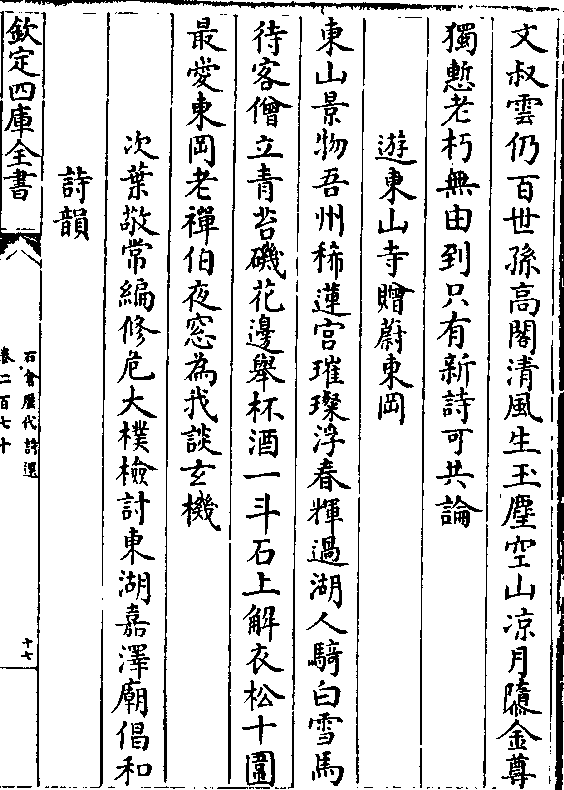 文叔雲仍百世孫高閣清風生玉麈空山凉月墮金尊
獨慙老朽無由到只有新詩可共論
遊東山寺贈蔚東岡
東山景物吾州稀蓮宫璀璨浮春輝過湖人騎白雪馬
待客僧立青苔磯花邊舉杯酒一斗石上解衣松十圍
最愛東岡老禪伯夜窓為我談玄機
次葉敬常編修危大樸檢討東湖嘉澤廟倡和
詩韻
欽定四庫全書
石倉歷代詩選
卷二百七十
十七